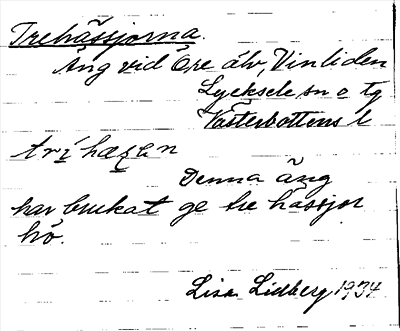 Trehässjorna.
Äng vid Öre älv, Vinliden
Lycksele sn o tg
Västerbottens l
Denna äng
har brukat ge tre hässjor
hö.
Lisa Lidberg 1934